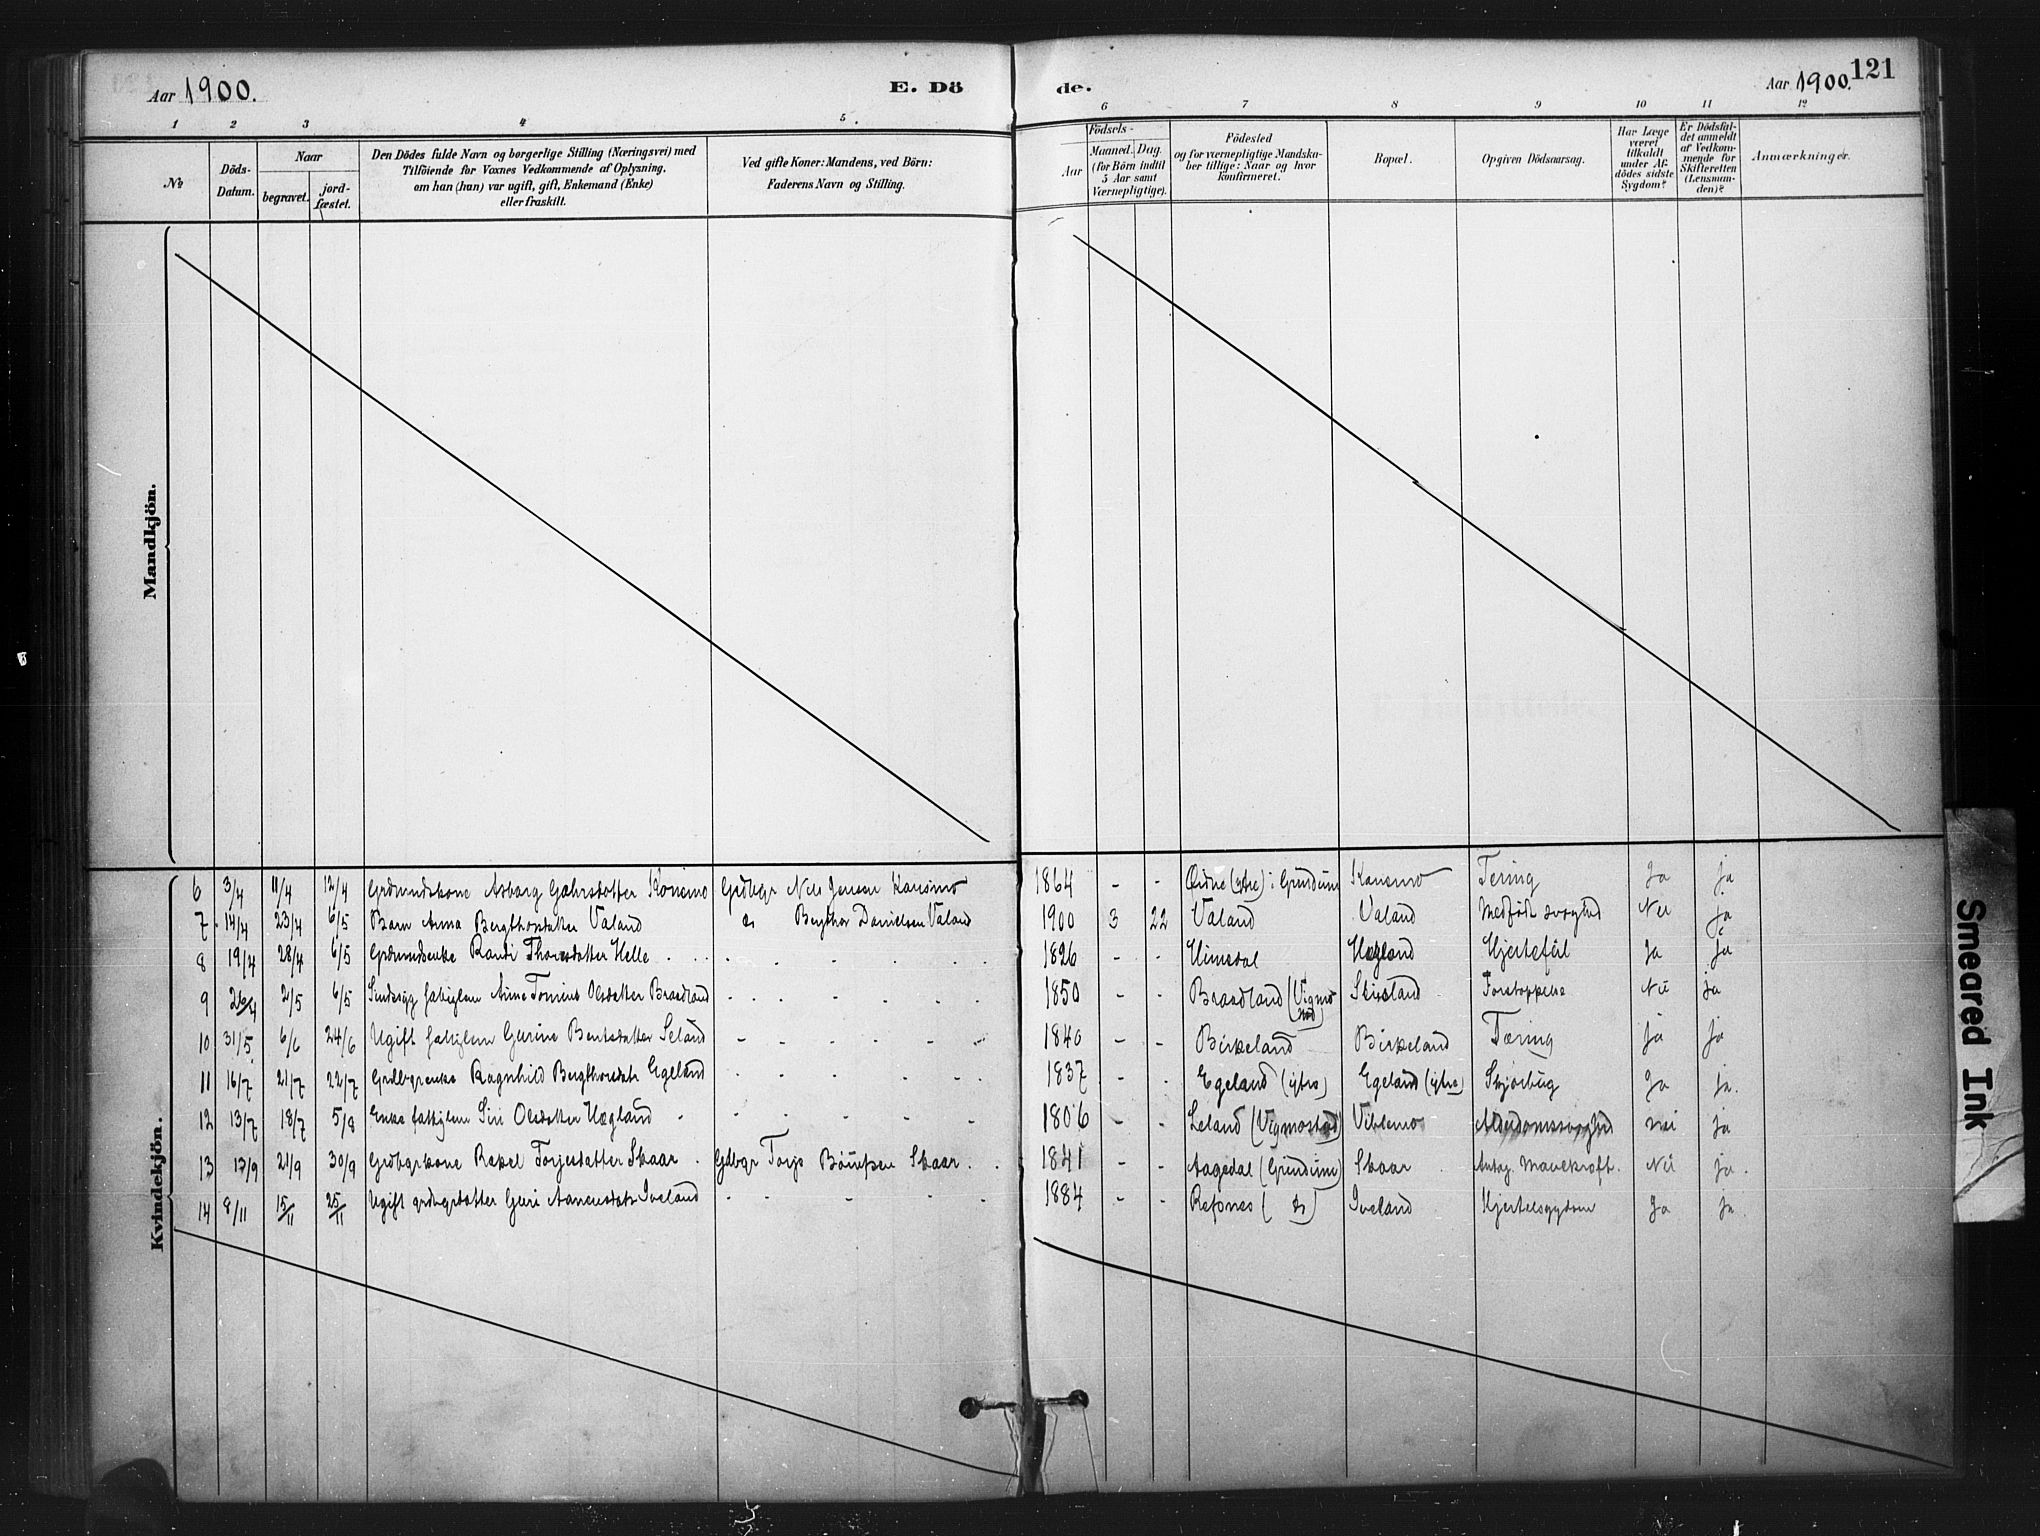 Aar 1900.
E. Dö
de.
Aar 1900.
121
1 2 3 4 5. 6 7 8 9 10 11 12
No
Döds-Datum.
Naar
begravet.
jordfæstet.
Den Dödes fulde Navn og borgerlige Stilling (Næringsvei) med
Tilföiende for Voxnes Vedkommende af Oplysning,
om han (hun) var ugift, gift, Enkemand (Enke)
eller fraskilt.
Ved gifte Koner: Mandens, ved Börn:
Faderens Navn og Stilling.
Födsels-
Aar
Maaned. Dag.
(for Börn indtil
5 Aar samt
Værnepligtige).
Födested
og for værnepligtige Mandska-
ber tillige: Naar og hvor
konfirmeret.
Bopæl.
Opgiven Dödsaarsag.
Har Læge
været
tilkaldt
under Af-
dödes sidste
Sygdom?
Er Dödsfal-
det anmeldt
af Vedkom-
mende for
Skifteretten
(Lensman-
den)?
Anmærkninger.
Mandkjön.
Kvindekjön.
6 3/4 11/4 12/4 Asborg Konsmo Nils Jensen Konsmo 1864 - - Øidne (ytre) i Grindum Konsmo Tæring Ja ja
7 14/4 23/4 6/5 Barn Anna Valand Danielsen Valand 1900 3 22 Valand Valand Medfødt svaghed Nei ja
8 19/4 28/4 6/5 Randi Thoresdatter Helle 1826 - - Himedal Hægland Hjertefeil Ja ja
9 26/4 2/5 6/5 Olsdatter Braadland 1850 - - Braadland (Vigmostad) Forstoppelse Nei ja
10 31/5 6/6 24/6 Ugift Gurine Bentsdatter Seland 1840 - - Birkeland Birkeland Tæring ja ja
11 16/7 21/7 22/7 Ragnhild Egeland 1837 - - Egeland (ytre) Egeland (ytre) Ja ja.
12 13/7 18/7 5/8 Enke Siri Olsdatter Hægland 1806 - - Leland (Vigmostad) Viblemo Alderdomssvaghed nei ja
13 17/9 21/9 30/9 Rakel Torjusdatter Skaar Gdbgr Skaar 1841 - - Aagedal (Grindum) Skaar Antag. Mavekræft. Nei ja.
14 8/11 15/11 25/11 Ugift Guri Iveland 1884 - - Iveland Hjertesygdom Ja ja.
Smeared Ink